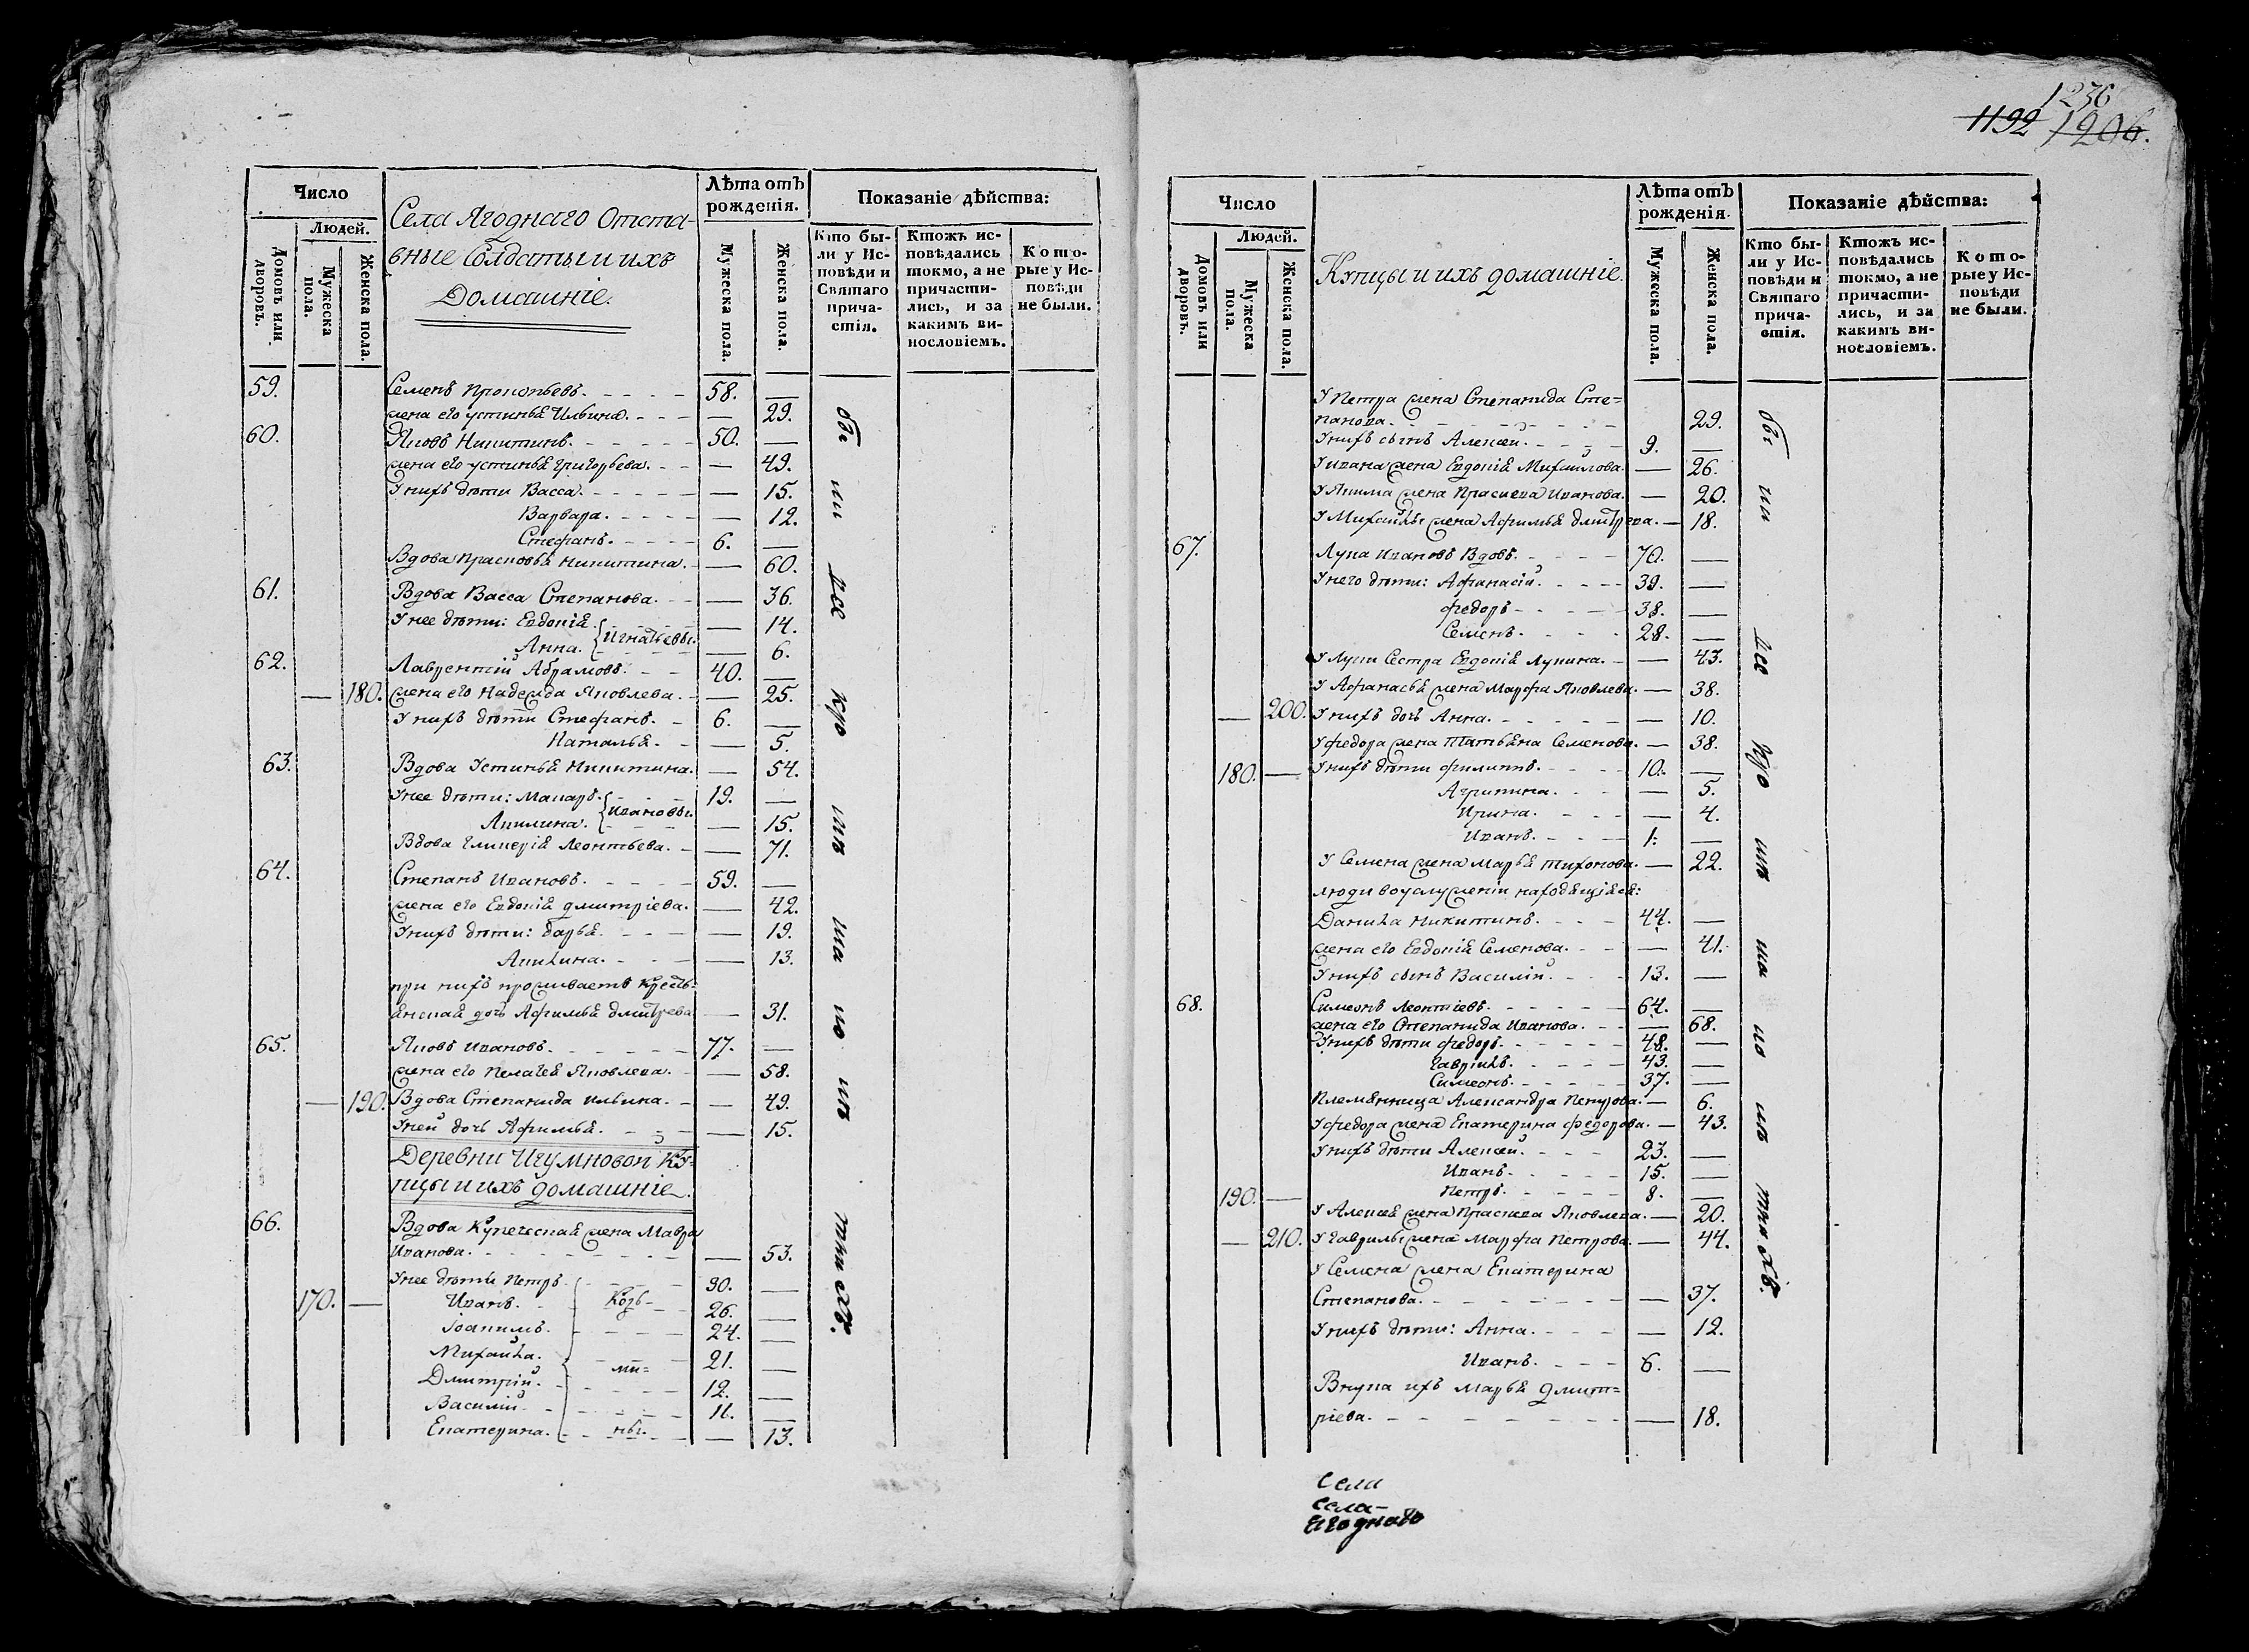 1236
1192 1206.
Число
Людей.
Домовъ или дворовъ.
Мужеска пола.
Женска пола.
Села Ягоднаго Отста-
вные Солдаты и ихъ
Домашніе.
Лѣта отъ рожденія.
Мужеска пола.
Женска пола.
Показаніе дѣйства:
Кто бы-
ли у Ис-
повѣди и
Святаго
прича-
стія.
Ктожъ ис-
повѣдались
токмо, а не
причасти-
лись, и за
какимъ ви-
нословіемъ.
Кото-
рые у Ис-
повѣди
не были.
59. Семенъ Прокопьевъ. 58. —
жена его устинья Ильина. — 29.
60. Яковъ Никитинъ. 50. —
жена его устинья григорьева. — 49.
У нихъ дѣти Васса. — 15.
Варвара. — 12.
Стефанъ. 6. —
Вдова Прасковья Никитина. — 60.
61. Вдова Васса Степанова. — 36.
У нее дѣти: Евдокія — 14.
Анна. Игнатьевы. — 6.
62. Лаврентій Абрамовъ. 40. —
— 180. жена его Надежда Яковлева. — 25.
У нихъ дѣти Стефанъ. 6. —
Наталья. — 5.
63. Вдова Устинья Никитина. — 54.
У нее дѣти: Макаръ. 19. —
Акилина. Ивановы. — 15.
Вдова Гликерія Леонтьева. — 71.
64. Степанъ Ивановъ. 59. —
жена его Евдокія дмитріева. — 42.
У нихъ дѣти: дарья. — 19.
Акилина. — 13.
при нихъ проживаетъ Кресть-
янская дочь Афимья дмитрева — 31.
65. Яковъ Ивановъ. 77. —
жена его Пелагея Яковлева. — 58.
— 190. Вдова Степанида Ильина. — 49.
У ней дочь Афимья. — 15.
Деревни Игумновой Ку-
пцы и ихъ домашніе.
66. Вдова Купеческая жена Мавра
Иванова. — 53.
У нее дѣти Петръ 30. —
170. — Иванъ. Козь- 26. —
Іоакимъ. 24. —
Михайла. 21. —
Дмитрій. ми= 12. —
Василій. 11. —
Екатерина. ны. — 13.
бы
ли
все
кро
мѣ
ма
ло
лѣ
тныхъ.
Число
Людей.
Домовъ или дворовъ.
Мужеска пола.
Женска пола.
Купцы и ихъ домашніе.
Лѣта отъ рожденія.
Мужеска пола.
Женска пола.
Показаніе дѣйства:
Кто бы-
ли у Ис-
повѣди и
Святаго
прича-
стія.
Ктожъ ис-
повѣдались
токмо, а не
причасти-
лись, и за
какимъ ви-
нословіемъ.
Кото-
рые у Ис-
повѣди
не были.
У Петра жена Степанида Сте=
панова. 29.
У нихъ сынъ Алексей. 9. —
У ивана жена Евдокія Михайлова. — 26.
У Якима жена Прасковa Иванова. — 20.
У Михайлы жена Афимья дмитрева. — 18.
67. Лупа Ивановъ Вдовъ. 70. —
У него дѣти: Афанасій. 39. —
федоръ 38. —
Семенъ. 28. —
У Лупы Сестра Евдокія Лупина. — 43.
У Афанасья жена Марфа Яковлева. — 38.
— 200. У нихъ дочь Анна. — 10.
У федора жена Татьяна Семенова. — 38.
180. — У нихъ дѣти филиппъ. 10. —
Агрипина. — 5.
Ирина. — 4.
Иванъ. 1. —
У Семена жена Марья тихонова. — 22.
люди во услуженіи находящіеся:
Данила Никитинъ. 44. —
жена его Евдокія Семенова. — 41.
У нихъ сынъ Василій. 13. —
68. Симеонъ Леонтіевъ. 64. —
жена его Степанида Иванова. — 68.
У нихъ дѣти федоръ. 48. —
гаврилъ. 43. —
Симеонъ. 37. —
Племянница Александра Петрова. — 6.
У федора жена Екатерина федорова. — 43.
У нихъ дѣти Алексей. 23. —
Иванъ. 15. —
190. — Петръ. 8. —
У Алексея жена Прасковa Яковлева. — 20.
— 210. У гаврилы жена Марфа Петрова. — 44.
У Семена жена Екатерина
Степанова. — 37.
У нихъ дѣти: Анна. — 12.
Иванъ. 6. —
Внука ихъ Марья дмит=
ріева. — 18.
бы
ли
все
кро
мѣ
ма
ло
лѣ
тныхъ.
Села
Села-
Ягоднаго